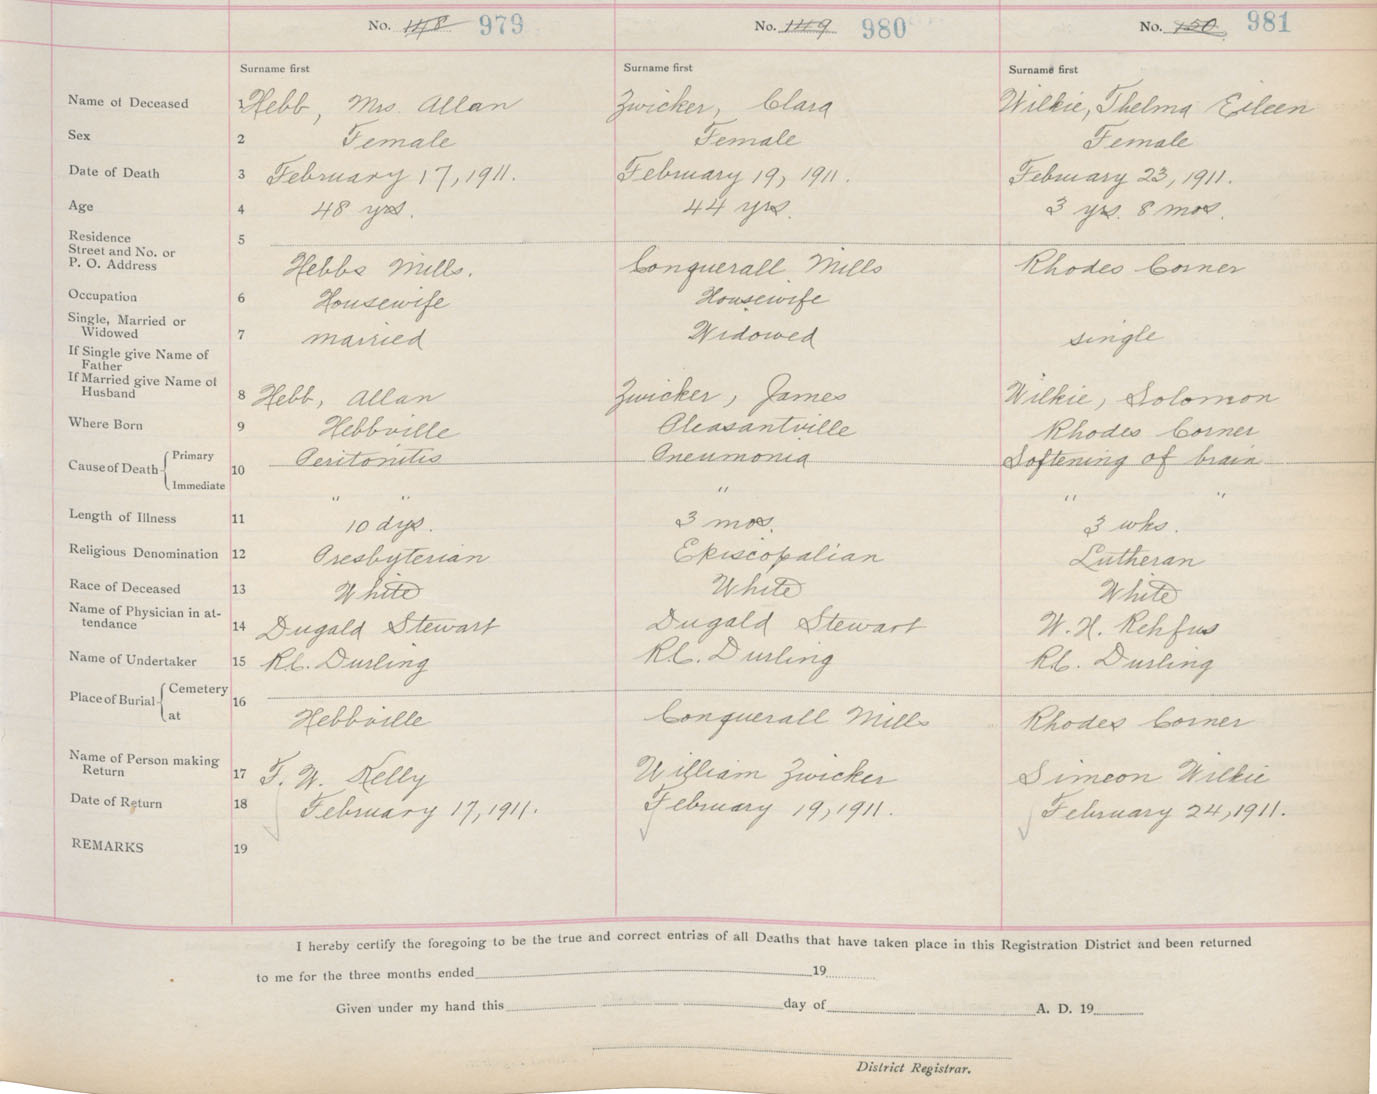 No. 148 979 No. 149 980 No. 150 981
Surname first Surname first Surname first
Name of Deceased 1 Hebb, Mrs. Allan Zwicker, Clara Wilkie, Thelma Eileen
Sex 2 Female Female Female
Date of Death 3 February 17, 1911. February 19, 1911. February 23, 1911.
Age 4 48 yrs. 44 yrs. 3 yrs. 8 mos.
Residence 5
Street and No. or
P. O. Address Hebbs Mills. Conquerall Mills Rhodes Corner
Occupation 6 Housewife Housewife
Single, Married or
Widowed 7 married Widowed single
If Single give Name of
Father
If Married give Name of
Husband 8 Hebb, Allan Zwicker, James Wilkie, Solomon
Where Born 9 Hebbville Pleasantville Rhodes Corner
Cause of Death Primary 10 Peritonitis Pneumonia Softening of brain
Immediate " " " " "
Length of Illness 11 10 dys. 3 mos. 3 wks.
Religious Denomination 12 Presbyterian Episcopalian Lutheran
Race of Deceased 13 White White White
Name of Physician in at-
tendance 14 Dugald Stewart Dugald Stewart W. H. Rehfus
Name of Undertaker 15 R.C. Durling R.C. Durling R.C. Durling
Place of Burial Cemetery 16
at Hebbville Conquerall Mills Rhodes Corner
Name of Person making
Return 17 F. W. Kelly William Zwicker Simeon Wilkie
Date of Return 18 February 17, 1911. February 19, 1911. February 24, 1911.
REMARKS 19
I hereby certify the foregoing to be the true and correct entries of all Deaths that have taken place in this Registration District and been returned
to me for the three months ended 19
Given under my hand this day of A. D. 19
District Registrar.